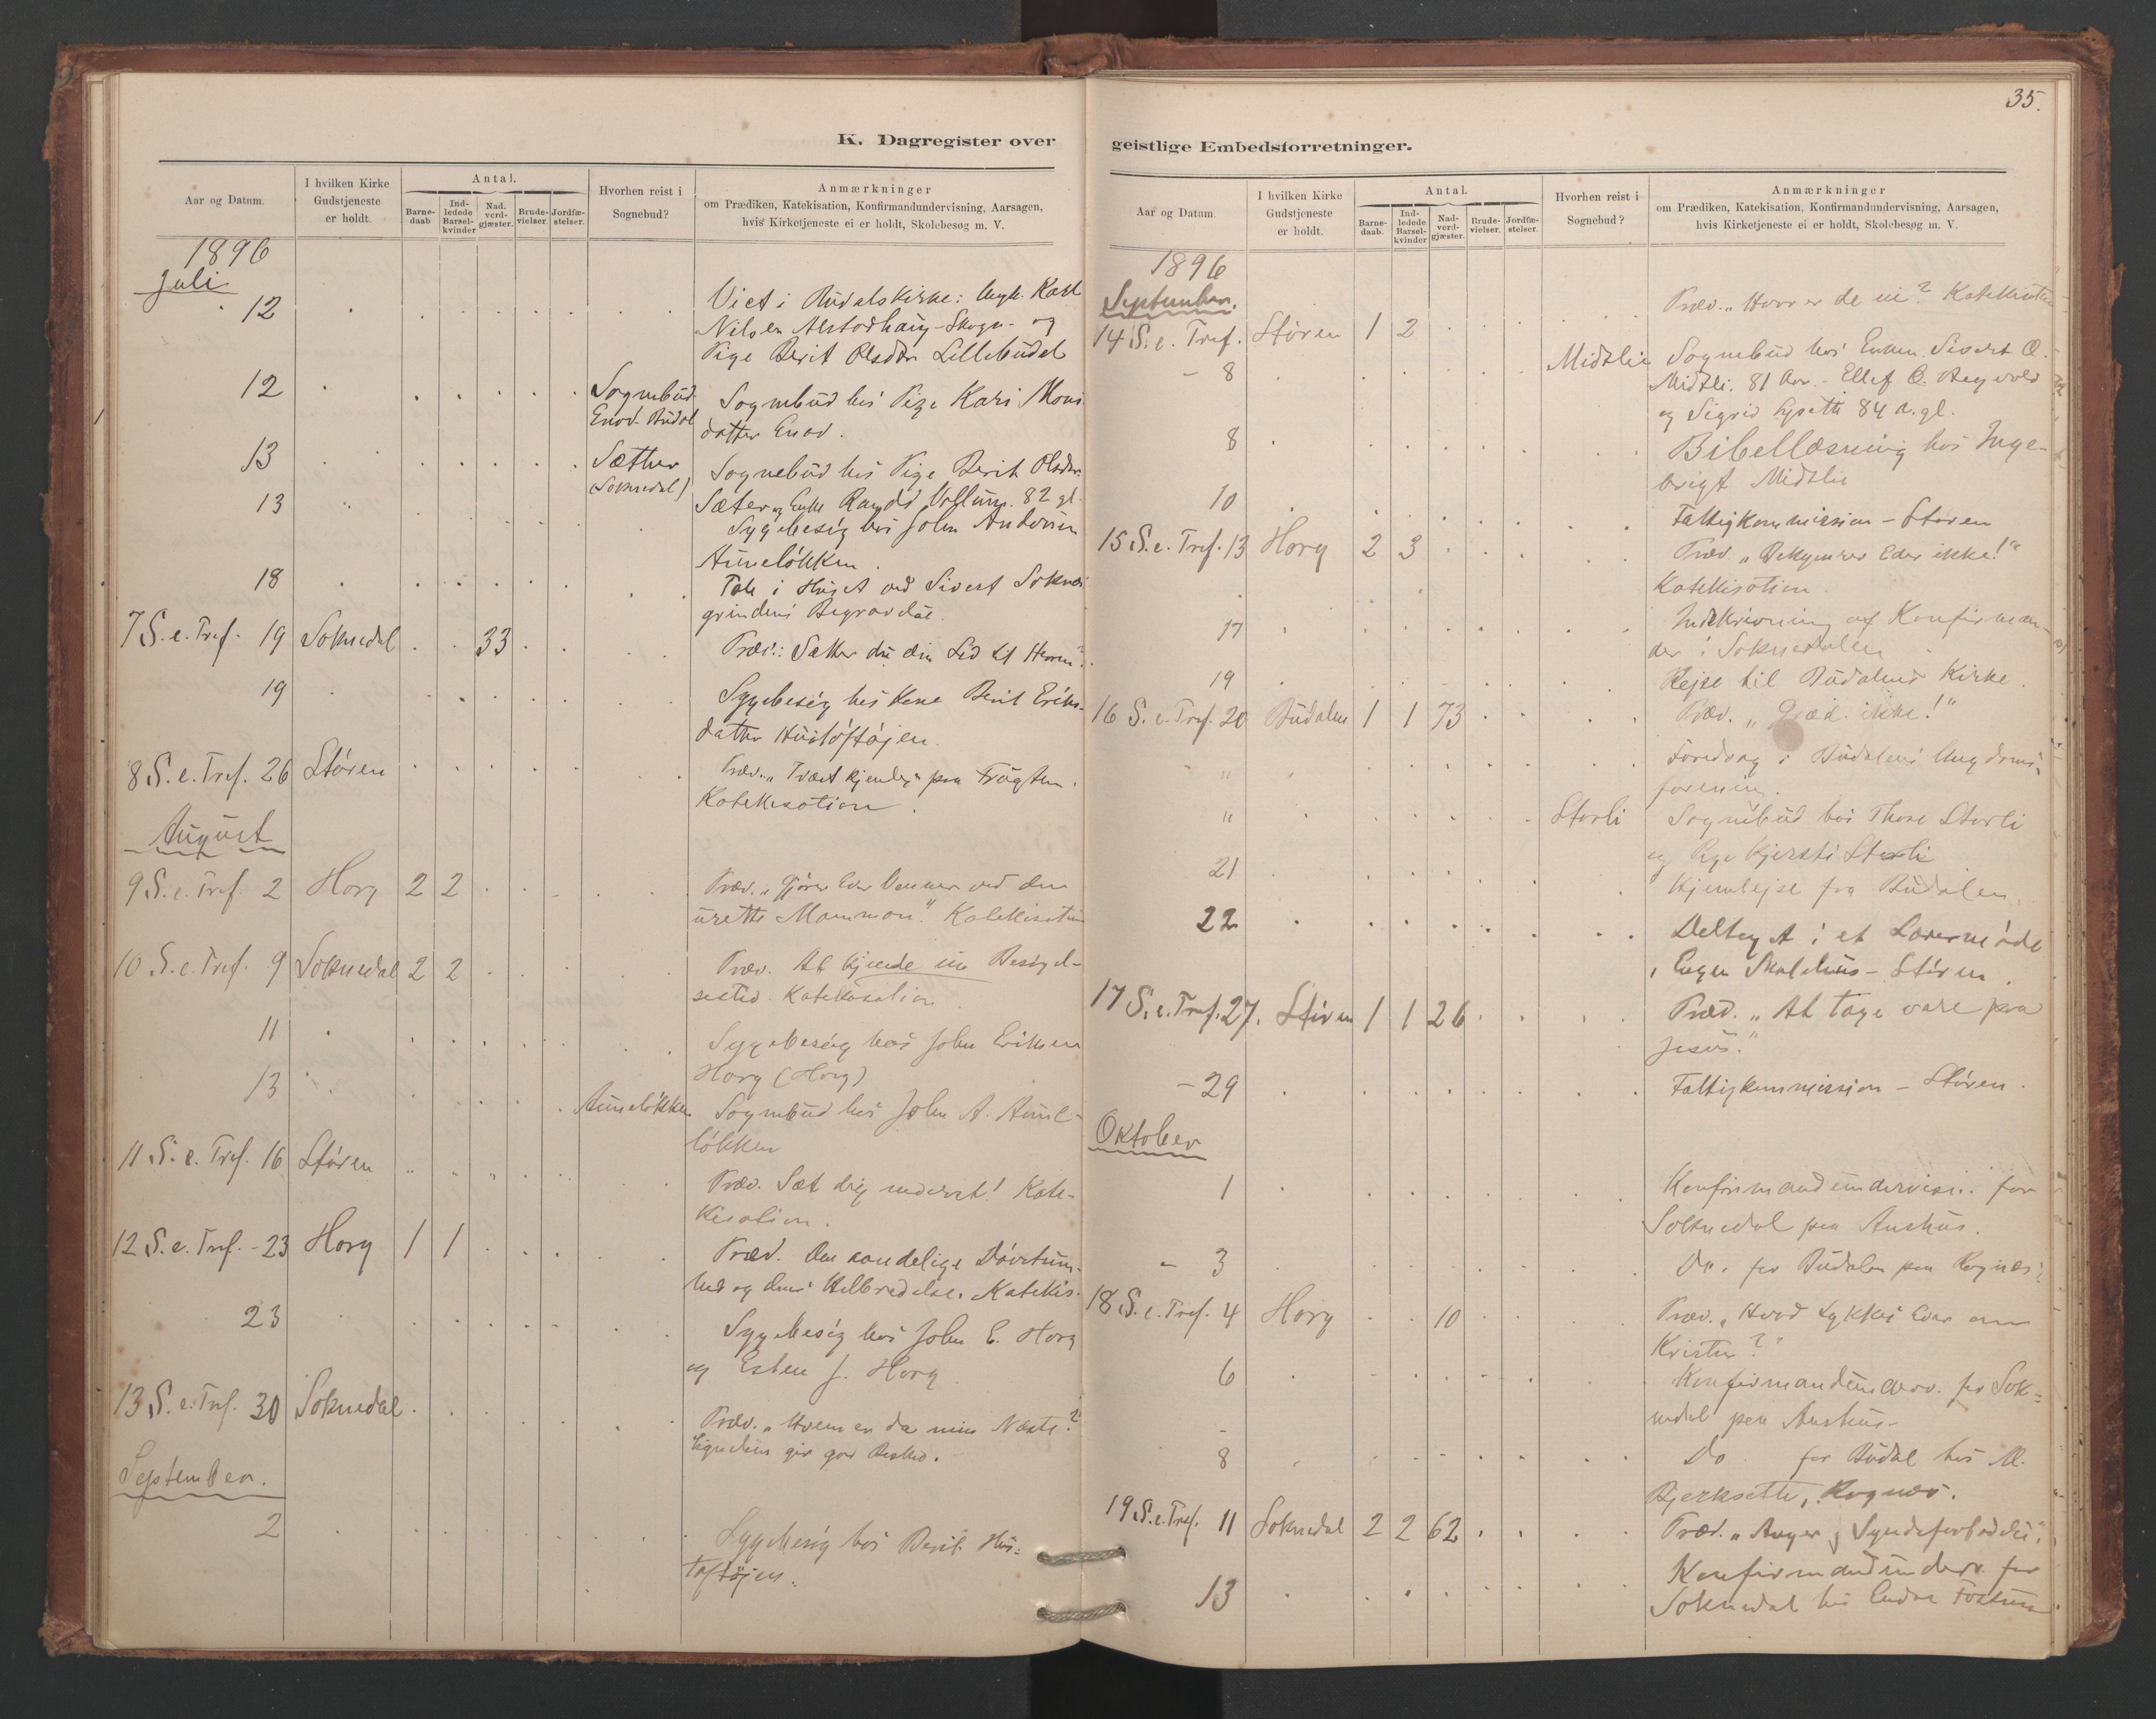 K. Dagregister over
Aar og Datum.
I hvilken Kirke
Gudstjeneste
er holdt.
Antal.
Barne-
daab
Ind-
ledede
Barsel-
kvinder
Nad.
verd-
gjæster.
Brude-
vielser.
Jordfæ-
stelser.
Hvorhen reist i
Sognebud?
Anmærkninger
om Prædiken, Katekisation, Konfirmandundervisning, Aarsagen,
hvis Kirketjeneste ei er holdt, Skolebesøg m. V.
1896
Juli
12 Viet i Budals Kirke: Ungk. Karl
Nilsen Alstadhaug-Skogn og
Pige Berit Olsdtr Lillebudal
12 Sognebud Sognebud hos Pige Kari Mons
Enod. Budal datter Enod.
13 Sæther Sognebud hos Pige Berit Olsdtr
(Soknedal) Sæter og Enke Randi 82 gl.
13 Sygebesøg hos John Andersen
Auneløkken.
18 Tale i Huset ved Sivert Soknes
grindens Begravelse.
7 S. e. Tref. 19 Soknedal 33 Præd.: Sætter du din Lid til Herren?
19 Sygebesøg hos Kone Berit Eriks-
datter Hustoftøjen.
8 S. e. Tref. 26 Støren Præd. "Træet kjendes paa Frugten.
Katekisation.
August
9 S. e. Tref. 2 Horg 2 2 Præd. "Gjører Eder Venner ved den
urette Mammon." Katekisation
10 S. e. Tref. 9 Soknedal 2 2 Præd. At kjende sin Besøgel-
sestid. Katekisation.
11 Sygebesøg hos John Eriksen
Horg (Horg)
13 Auneløkken Sognebud hos John A. Aune-
løkken
11 S. e. Tref. 16 Støren Præd. Sæt dig nederst! Kate-
kisation.
12 S. e. Tref. - 23 Horg 1 1 Præd. Den aandelige Døvstum-
hed og dens Helbredelse. Katekis.
23 Sygebesøg hos John E. Horg
og Esten J. Horg.
13 S. e. Tref. 30 Soknedal Præd. "Hvem er da min Næste?
Lignelsen gir god Besked.
September.
2 Sygebesøg hos Berit Hus-
toftøjen.
35.
geistlige Embedsforretninger.
Aar og Datum.
I hvilken Kirke
Gudstjeneste
er holdt.
Antal.
Barne-
daab.
Ind-
ledede
Barsel-
kvinder
Nad-
verd-
gjæster.
Brude-
vielser.
Jordfæ-
stelser.
Hvorhen reist i
Sognebud?
Anmærkninger
om Prædiken, Katekisation, Konfirmandundervisning, Aarsagen,
hvis Kirketjeneste ei er holdt, Skolebesøg m. V.
1896
September.
14 S. e. Tref. Støren 1 2 Præd. "Hvor er de ni? Katekisation
- 8 Midtlie Sognebud hos Enken Sivert O.
Midtli. 81 Aar. - Ellef O.
og Sigrid 84 a. gl.
8 Bibellæsning hos Inge-
brigt Midtlie
10 Fattigkommission - Støren
15 S. e. Tref. 13 Horg 2 3 Præd. "Bekymrer Eder ikke!"
Katekisation.
17 Indskrivning af Konfirman-
der i Soknedalen
19 Rejse til Budalens Kirke.
16 S. e. Tref. 20 Budalen 1 1 73 Præd. "Græd ikke!"
" Foredrag i Budalens Ungdoms-
forening.
" Storli Sognebud hos Thore Storli
og Pige Kjersti Storli
21 Hjemrejse fra Budalen.
22 Deltaget i et Lærermøde
i Engen Skolehus - Støren.
17 S. e. Tref. 27. Støren 1 1 26 Præd. "At tage vare paa
Jesus."
- 29 Fattigkommission - Støren.
Oktober
1 Konfirmandundervisn. for
Soknedal paa Aushus.
- 3 Do. for Budalen paa Rognes.
18 S. e. Tref. 4 Horg 10 Præd. "Hvad tykkes Eder om
Kristus?"
6 Konfirmandunderv. for Sok-
nedal paa Aushus.
8 Do for Budal hos M.
Bjerksette, Rognes.
19 S. e. Tref. 11 Soknedal 2 2 62 Præd. "Anger & Syndsforladelse".
13 Konfirmandunderv. for
Soknedal hos Endre